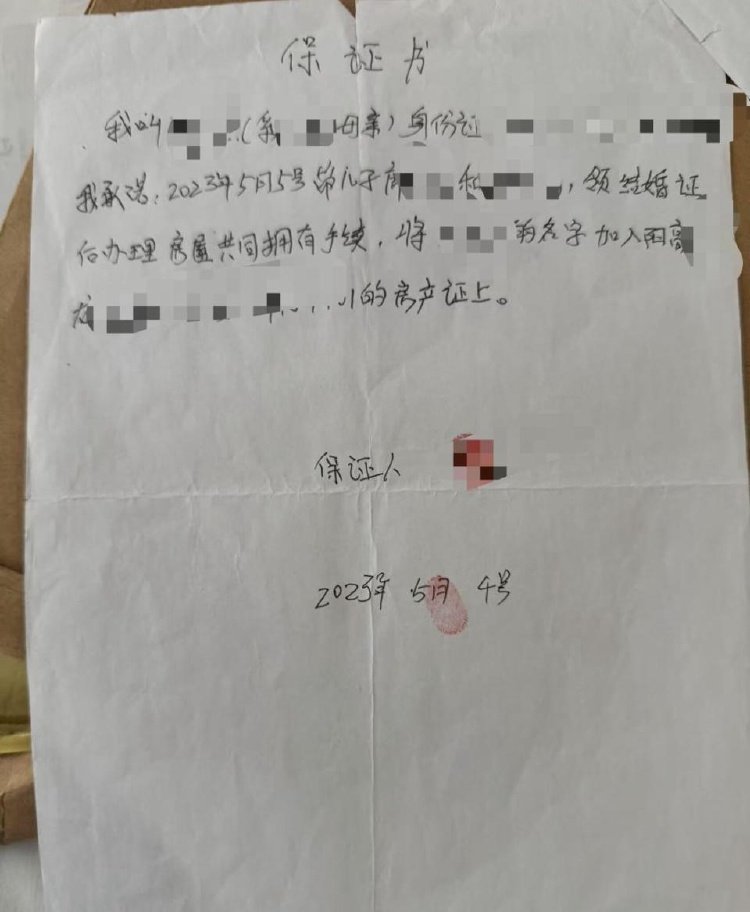 保证书
我叫 (系 母亲)身份证
我承诺:2023年5月5号 儿子 和 ,领结婚证
后办理房屋共同拥有手续,将 的名字加入阳高
的房产证上。
保证人
2023年 5月 4号